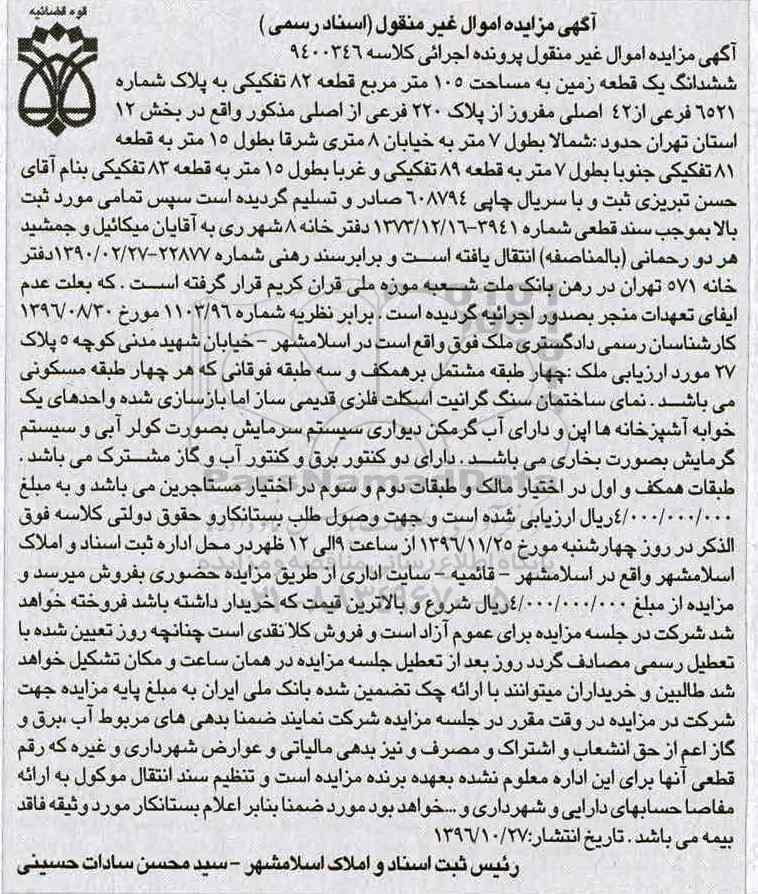 قوه قضائیه
آگهی مزایده اموال غیر منقول (اسناد رسمی)
آگهی مزایده اموال غیر منقول پرونده اجرائی کلاسه ۹۴۰۰۳۴۶
ششدانگ یک قطعه زمین به مساحت ۱۰۵ متر مربع قطعه ۸۲ تفکیکی به پلاک شماره
۶۵۲۱ فرعی از۴۲ اصلی مفروز از پلاک ۲۲۰ فرعی از اصلی مذکور واقع در بخش ۱۲
استان تهران حدود :شمالا بطول ۷ متر به خیابان ۸ متری شرقا بطول ۱۵ متر به قطعه
۸۱ تفکیکی جنوبا بطول ۷ متر به قطعه ۸۹ تفکیکی و غربا بطول ۱۵ متر به قطعه ۸۳ تفکیکی بنام آقای
حسن تبریزی ثبت و با سریال چاپی ۶۰۸۷۹۴ صادر و تسلیم گردیده است سپس تمامی مورد ثبت
بالا بموجب سند قطعی شماره ۳۹۴۱-۱۳۷۳/۱۲/۱۶ دفتر خانه ۸ شهر ری به آقایان میکائیل و جمشید
هر دو رحمانی (بالمناصفه) انتقال یافته است و برابرسند رهنی شماره ۲۲۸۷۷-۱۳۹۰/۰۲/۲۷دفتر
خانه ۵۷۱ تهران در رهن بانک ملت شعبه موزه ملی قران کریم قرار گرفته است . که بعلت عدم
ایفای تعهدات منجر بصدور اجرائیه گردیده است . برابر نظریه شماره ۱۱۰۲/۹۶ مورخ ۱۳۹۶/۰۸/۳۰
کارشناسان رسمی دادگستری ملک فوق واقع است در اسلامشهر - خیابان شهید مدنی کوچه ۵ پلاک
۲۷ مورد ارزیابی ملک :چهار طبقه مشتمل برهمکف و سه طبقه فوقانی که هر چهار طبقه مسکونی
می باشد . نمای ساختمان سنگ گرانیت اسکلت فلزی قدیمی ساز اما بازسازی شده واحدهای یک
خوابه آشپزخانه ها اپن و دارای آب گرمکن دیواری سیستم سرمایش بصورت کولر آبی و سیستم
گرمایش بصورت بخاری می باشد . دارای دو کنتور برق و کنتور آب و گاز مشترک می باشد .
طبقات همکف و اول در اختیار مالک و طبقات دوم و سوم در اختیار مستاجرین می باشد و به مبلغ
۴/۰۰۰/۰۰۰/۰۰۰ریال ارزیابی شده است و جهت وصول طلب بستانکارو حقوق دولتی کلاسه فوق
الذکر در روز چهارشنبه مورخ ۱۳۹۶/۱۱/۲۵ از ساعت ۹الی ۱۲ ظهردر محل اداره ثبت اسناد و املاک
اسلامشهر واقع در اسلامشهر - قائمیه - سایت اداری از طریق مزایده حضوری بفروش میرسد و
مزایده از مبلغ ۴/۰۰۰/۰۰۰/۰۰۰ریال شروع و بالاترین قیمت که خریدار داشته باشد فروخته خواهد
شد شرکت در جلسه مزایده برای عموم آزاد است و فروش کلا نقدی است چنانچه روز تعیین شده با
تعطیل رسمی مصادف گردد روز بعد از تعطیل جلسه مزایده در همان ساعت و مکان تشکیل خواهد
شد طالبین و خریداران میتوانند با ارائه چک تضمین شده بانک ملی ایران به مبلغ پایه مزایده جهت
شرکت در مزایده در وقت مقرر در جلسه مزایده شرکت نمایند ضمنا بدهی های مربوط آب ،برق و
گاز اعم از حق انشعاب و اشتراک و مصرف و نیز بدهی مالیاتی و عوارض شهرداری و غیره که رقم
قطعی آنها برای این اداره معلوم نشده بعهده برنده مزایده است و تنظیم سند انتقال موکول به ارائه
مفاصا حسابهای دارایی و شهرداری و ...خواهد بود مورد ضمنا بنابر اعلام بستانکار مورد وثیقه فاقد
بیمه می باشد . تاریخ انتشار:۱۳۹۶/۱۰/۲۷
رئیس ثبت اسناد و املاک اسلامشهر - سید محسن سادات حسینی